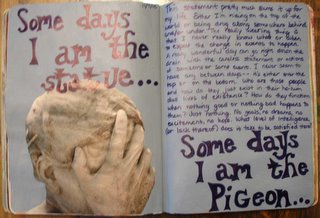 Some days
I am the
statue...
This statement pretty much sums it up for
my life. Either I'm riding on the top of the
world or being drug along somewhere behind
and/or under. The really annoying thing is
that I never really know what or when
to expect the change in events to happen.
A really wonderful day can go right down the
drain with the careless statement or actions
of someone or some event. I never seem to
have any between days -- it's either over the
top or on the bottom. Who are those people
and how do they just exist in their ho-hum
dull lives of existence? How do they function
when nothing good or nothing bad happens to
them? Just nothing. No goals, no dreams, no
excitements, no hope. What level of intelligence
(or lack thereof) does it take to be satisfied there
Some days
I am the
Pigeon...